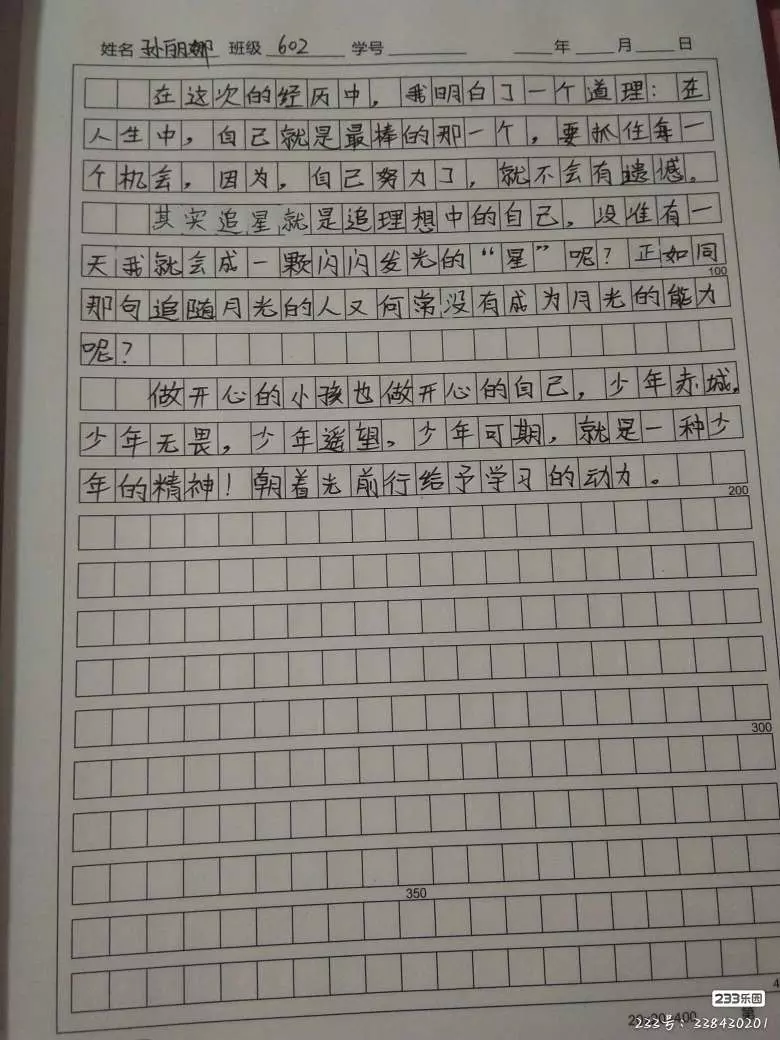 姓名 孙丽娜 班级 602 学号 年 月 日
在这次的经历中，我明白了一个道理：在
人生中，自己就是最棒的那一个，要抓住每一
个机会，因为，自己努力了，就不会有遗憾。
其实追星就是追理想中的自己，没准有一
天我就会成一颗闪闪发光的“星”呢？正如同
100
那句追随月光的人又何常没有成为月光的能力
呢？
做开心的小孩也做开心的自己，少年赤城，
少年无畏，少年遥望，少年可期，就是一种少
年的精神！朝着光前行给予学习的动力。
200
300
350
4
20×20=400 第
233乐园
233号：338430201